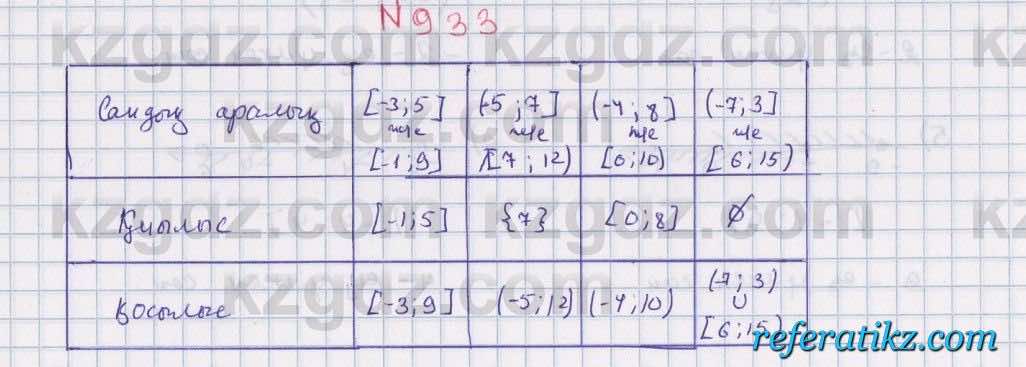 N933
Сандық аралық [-3;5] (-5;7] (-4;8] (-7;3]
және және және және
[-1;9] [7;12) [0;10) [6;15)
Қиылыс [-1;5] {7} [0;8] ∅
Қосылыс [-3;9] (-5;12) (-4;10) (-7;3)
∪
[6;15)
kzgdz.com
referatikz.com